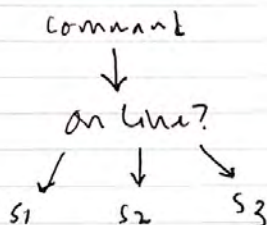 command
on line?
S1 S2 S3